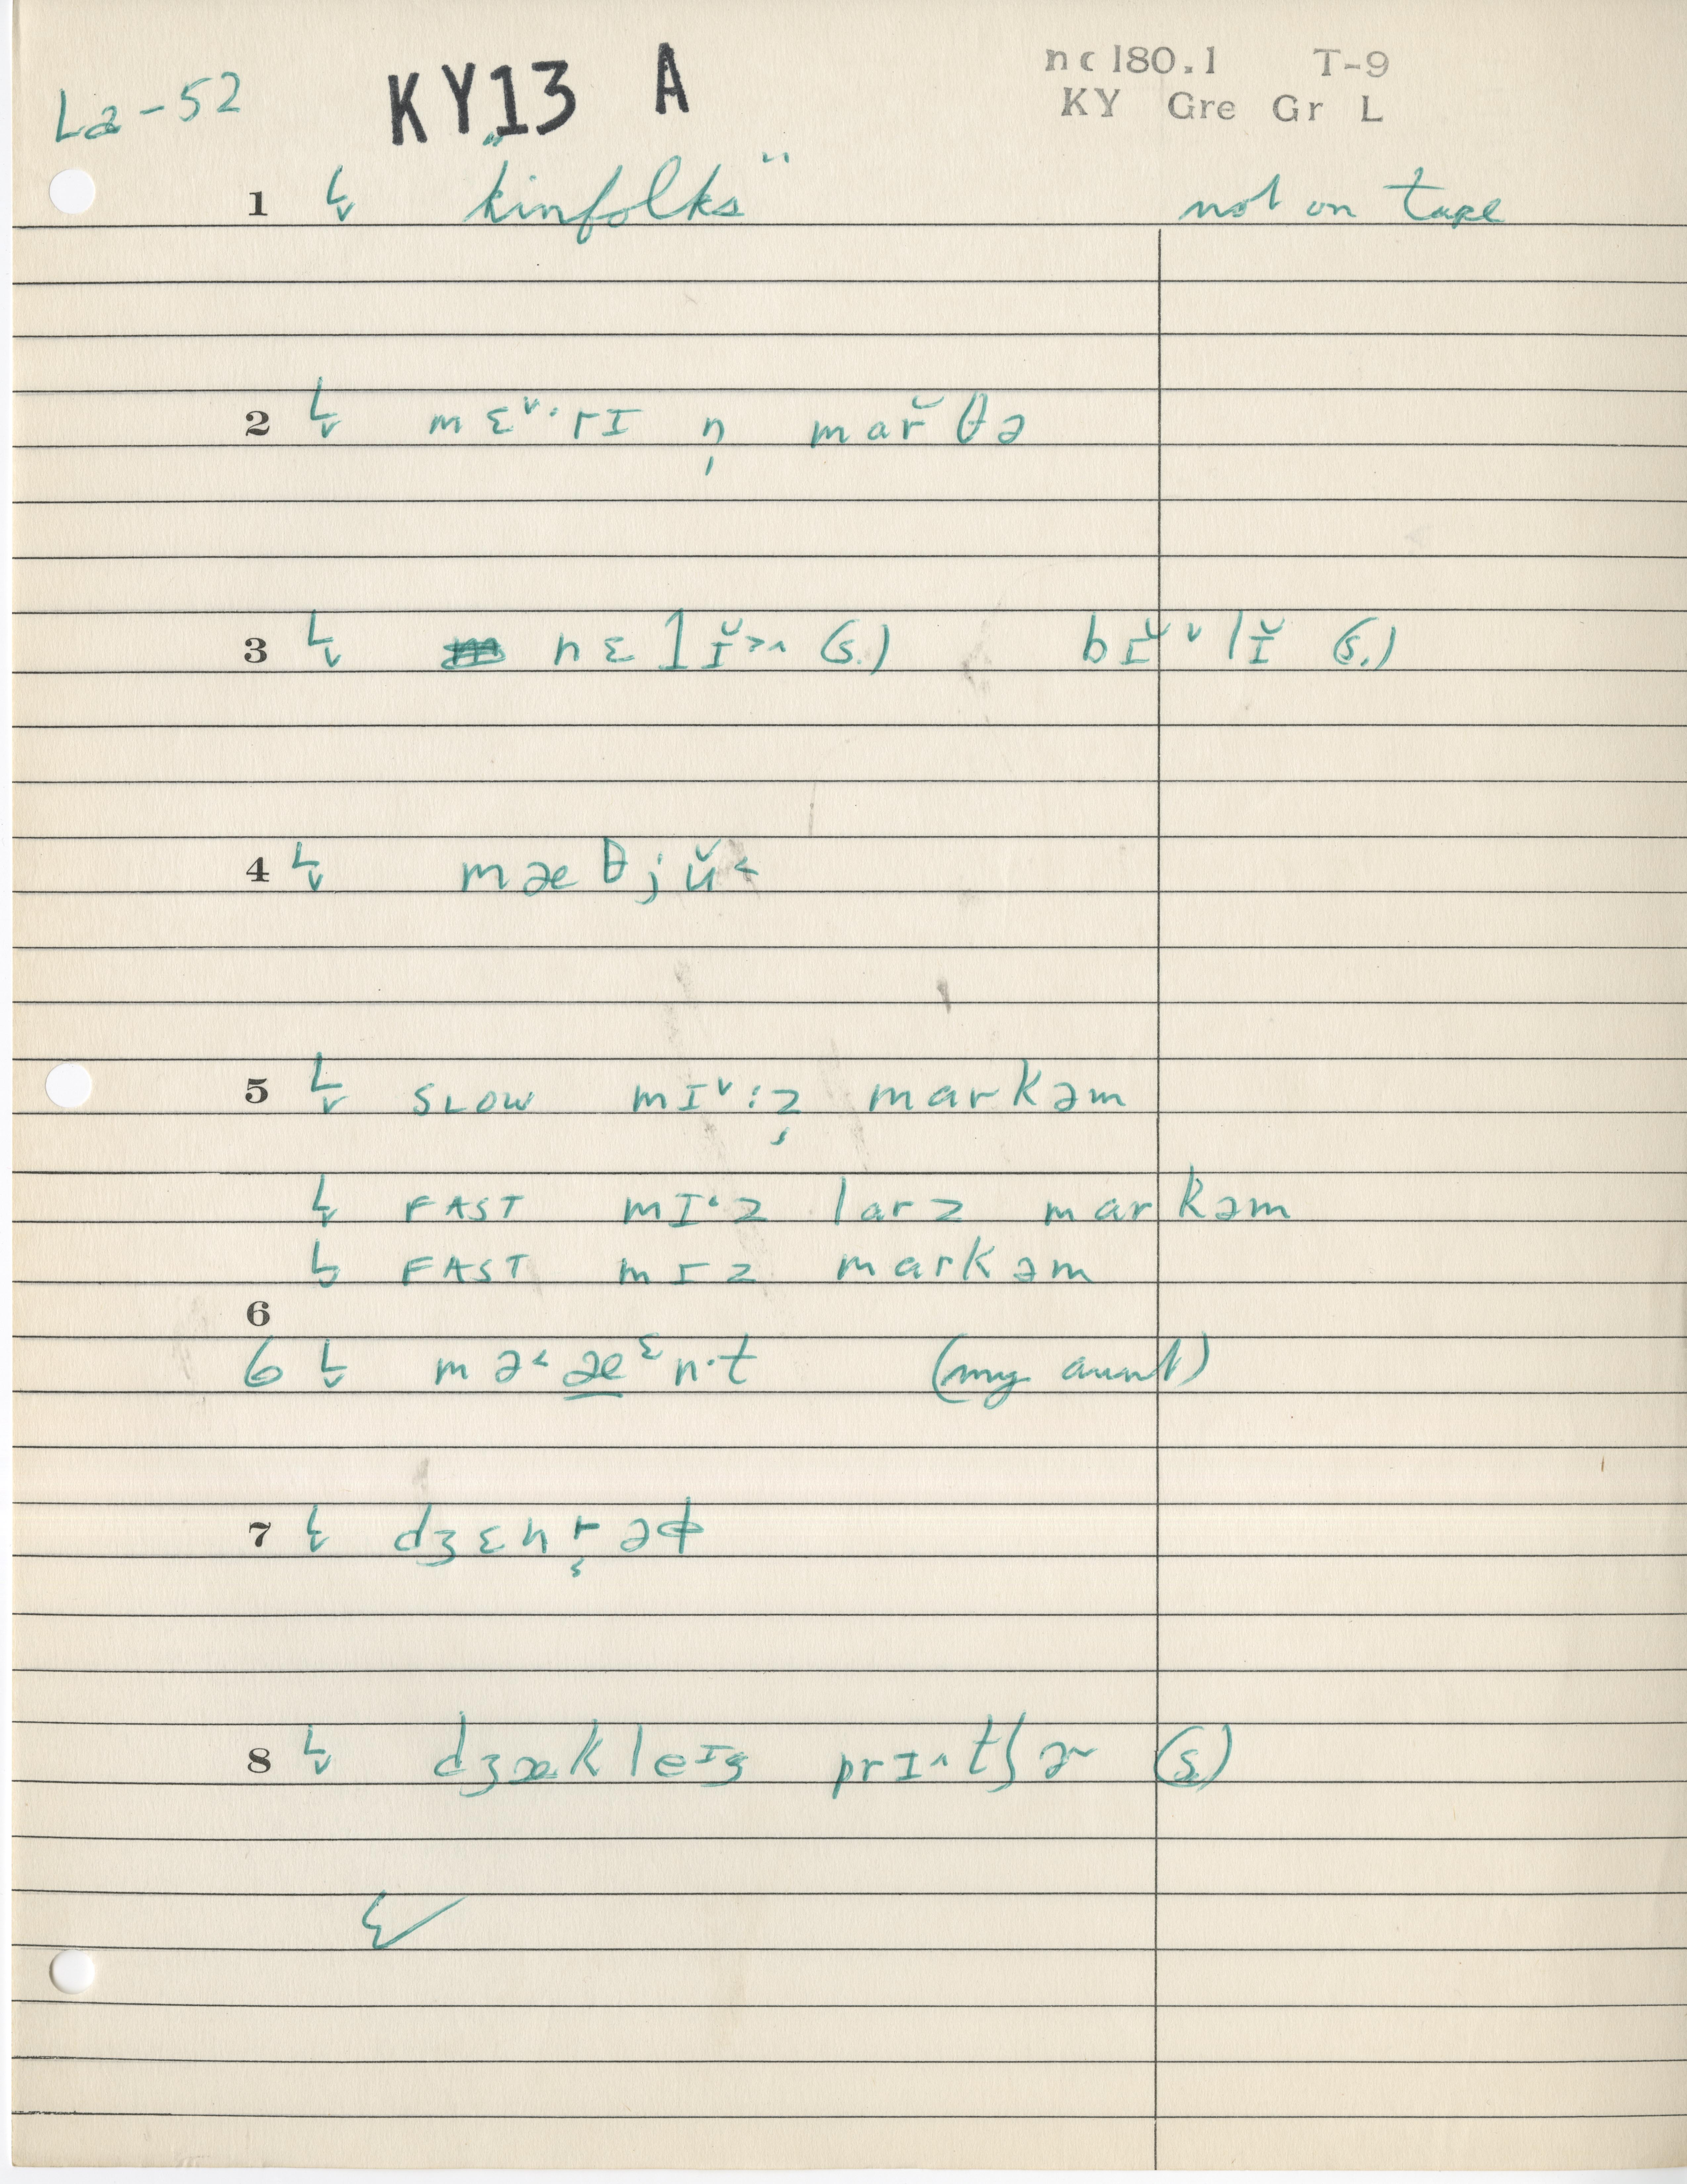 La-52 KY13 A nc180.1 T-9
KY Gre Gr L
1 "kinfolks" not on tape
2 mɛᵛ·rɪ n̩ mar̆θə
3 nɛlɪ̆>^ (s.) bɪ̆ᵛlɪ̆ (s.)
4 mæθjŭ<
5 SLOW mɪᵛ:z̦ markəm
FAST mɪ·z larz markəm
FAST mɪz markəm
6
6 mə< æᵋn·t (my aunt)
7 dʒɛnr̦əɸ
8 dʒækleɪg prɪ^ntʃɚ (s)